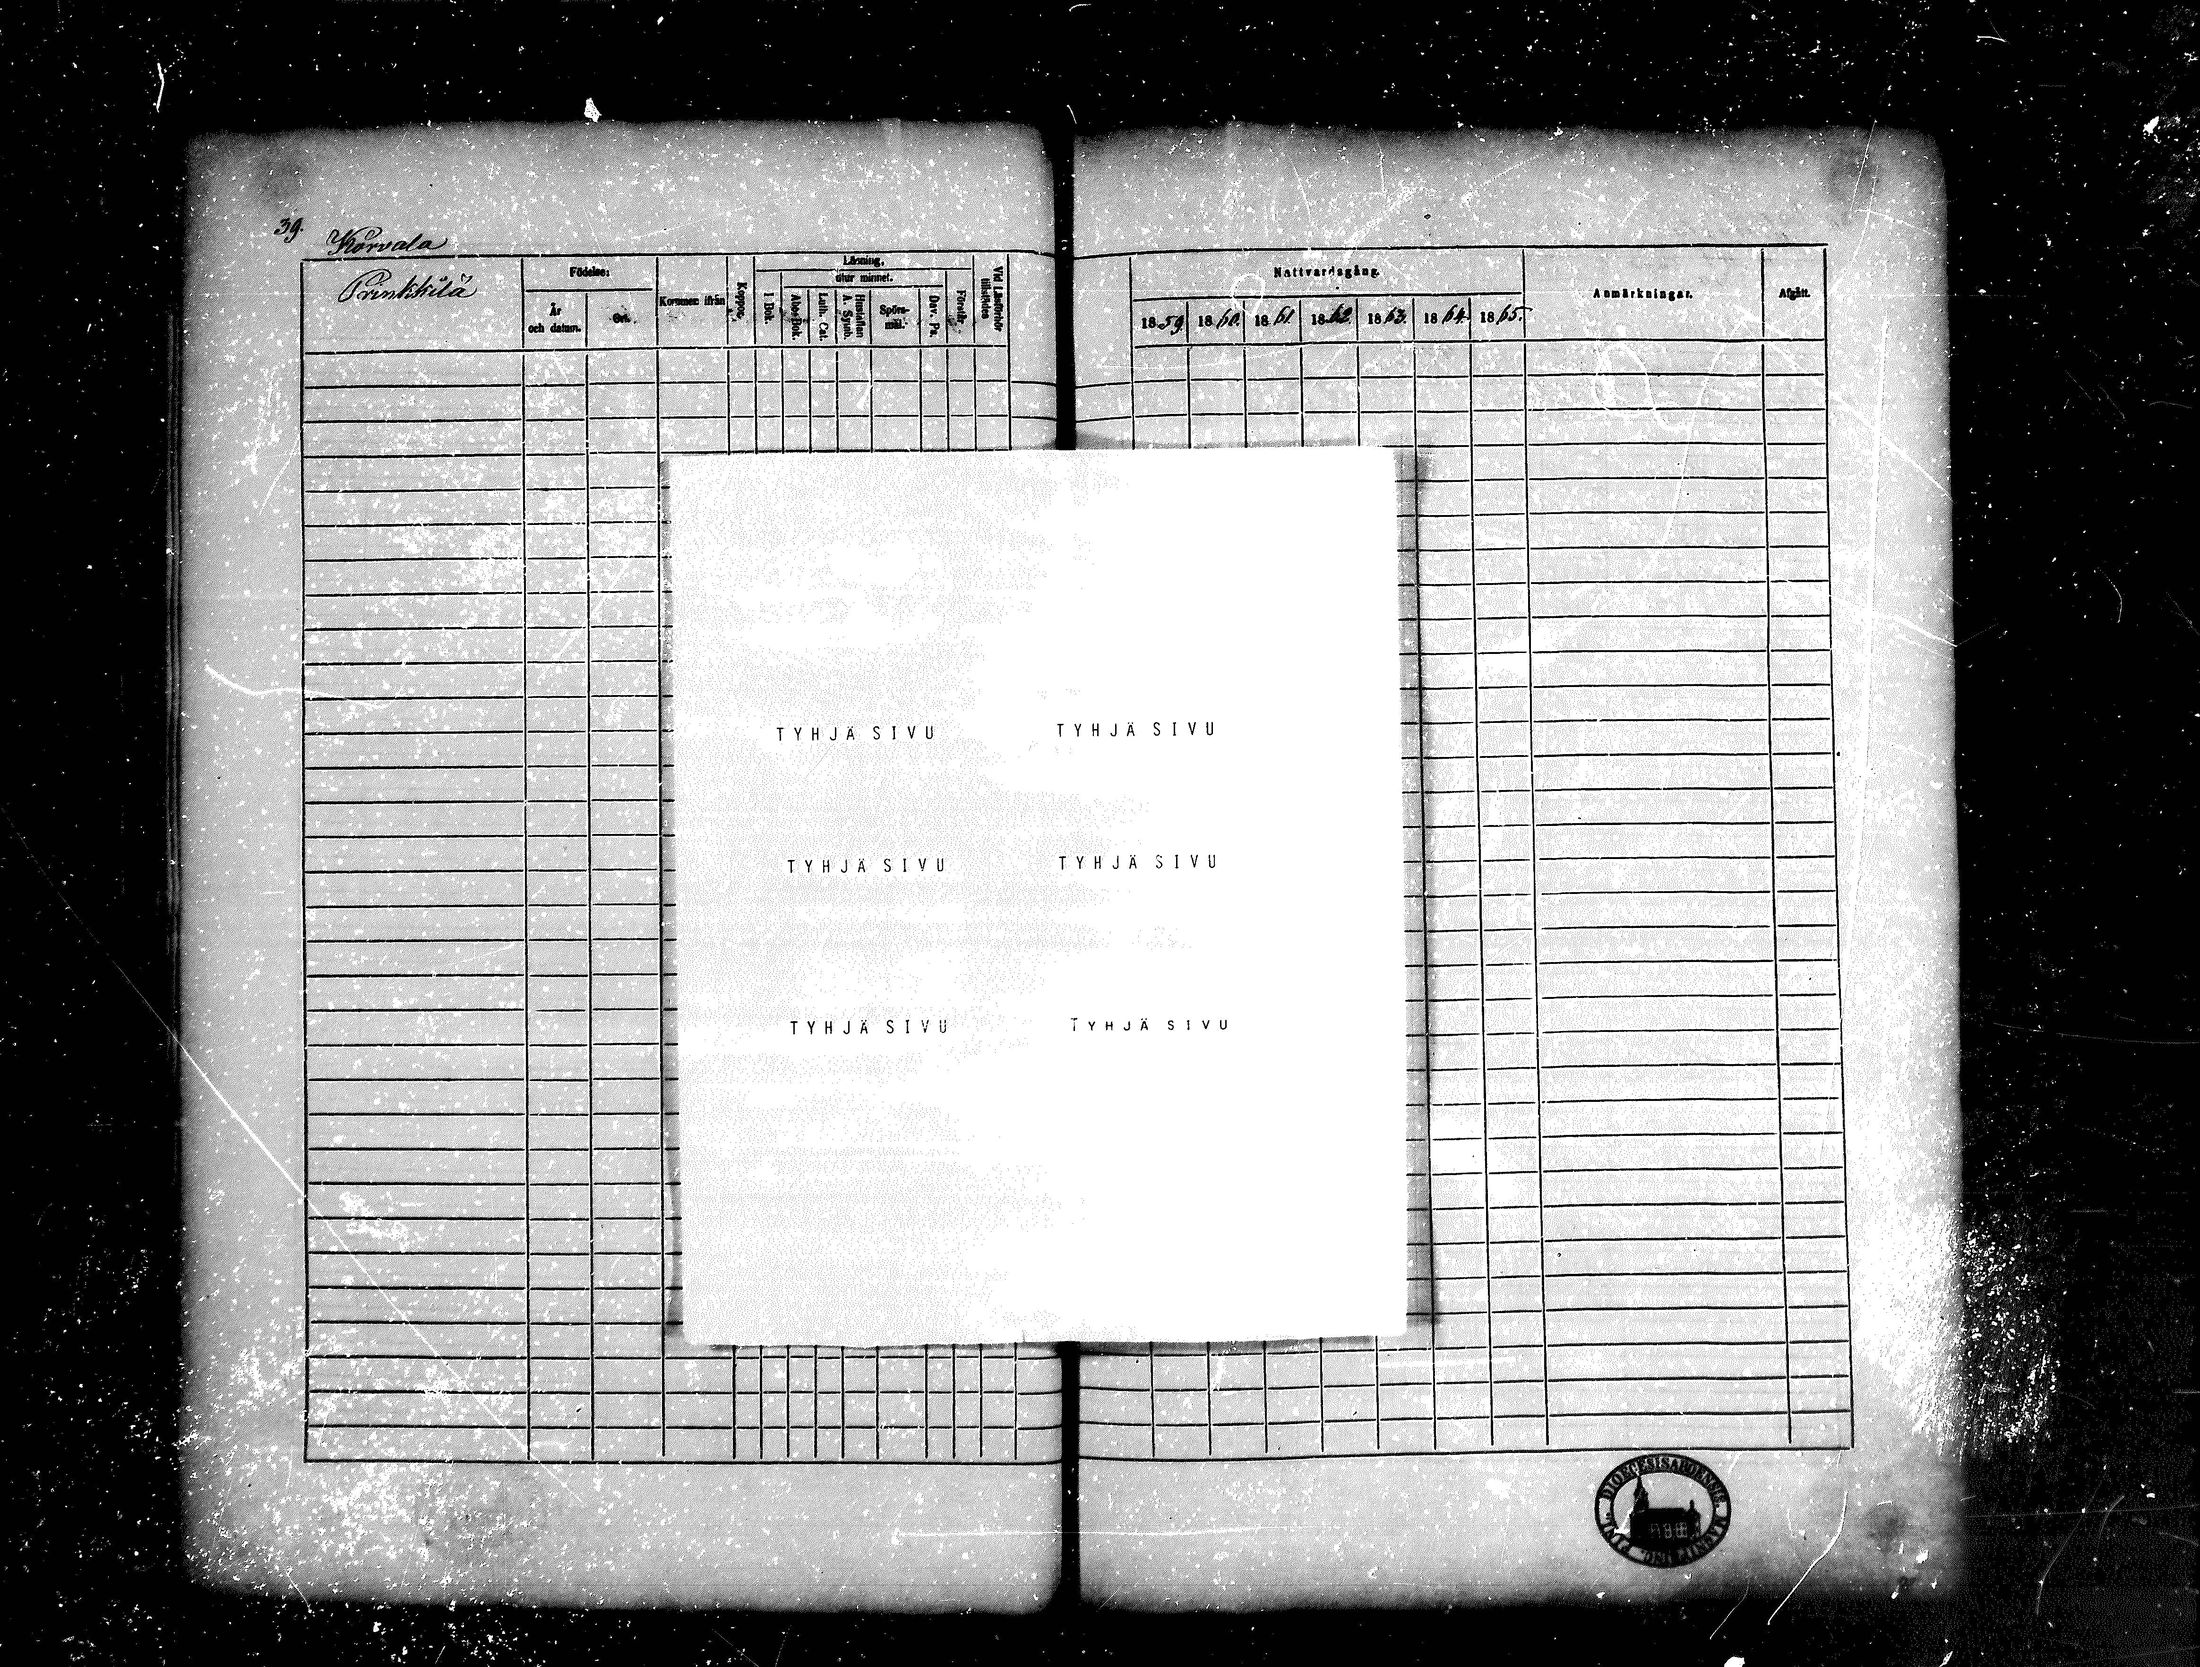 39.
Korvala
Prinkkilä
Födelse:
År
och datum.
Ort.
Kommen ifrån
Koppor.
Läsning,
utur minnet.
I Bok.
Abc-Bok.
Luth. Cat.
Hustaflan
A. Symb.
Spörs-
mål.
Dav. Ps.
Förstår.
Vid Läsförhör
tillstädes
Nattvardsgång.
1859 1860. 1861. 1862. 1863. 1864. 1865.
Anmärkningar.
Afgått.
TYHJÄ SIVU TYHJÄ SIVU
TYHJÄ SIVU TYHJÄ SIVU
TYHJÄ SIVU TYHJÄ SIVU
DIOECESIS ABOENSIS